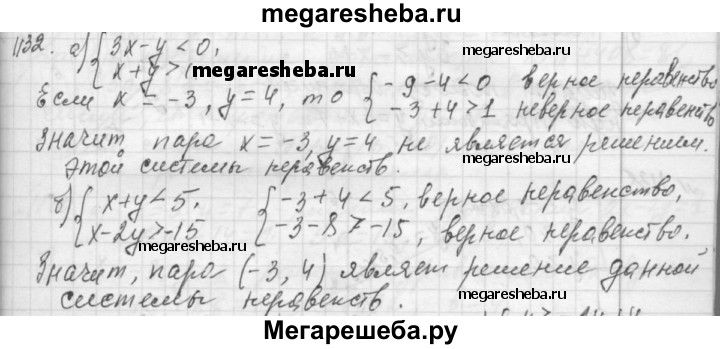 megaresheba.ru
1132. а) { 3x - y < 0,
x + y > 1
megaresheba.ru
Если x = -3, y = 4, то { -9 - 4 < 0 верное неравенство
-3 + 4 > 1 неверное неравенство
Значит пара x = -3, y = 4 не является решением.
этой системы неравенств.
б) { x + y < 5, { -3 + 4 < 5, верное неравенство,
x - 2y > -15 -3 - 8 > -15, верное неравенство.
megaresheba.ru
Значит, пара (-3, 4) являет решение данной
системы неравенств.
megaresheba.ru
Мегарешеба.ру